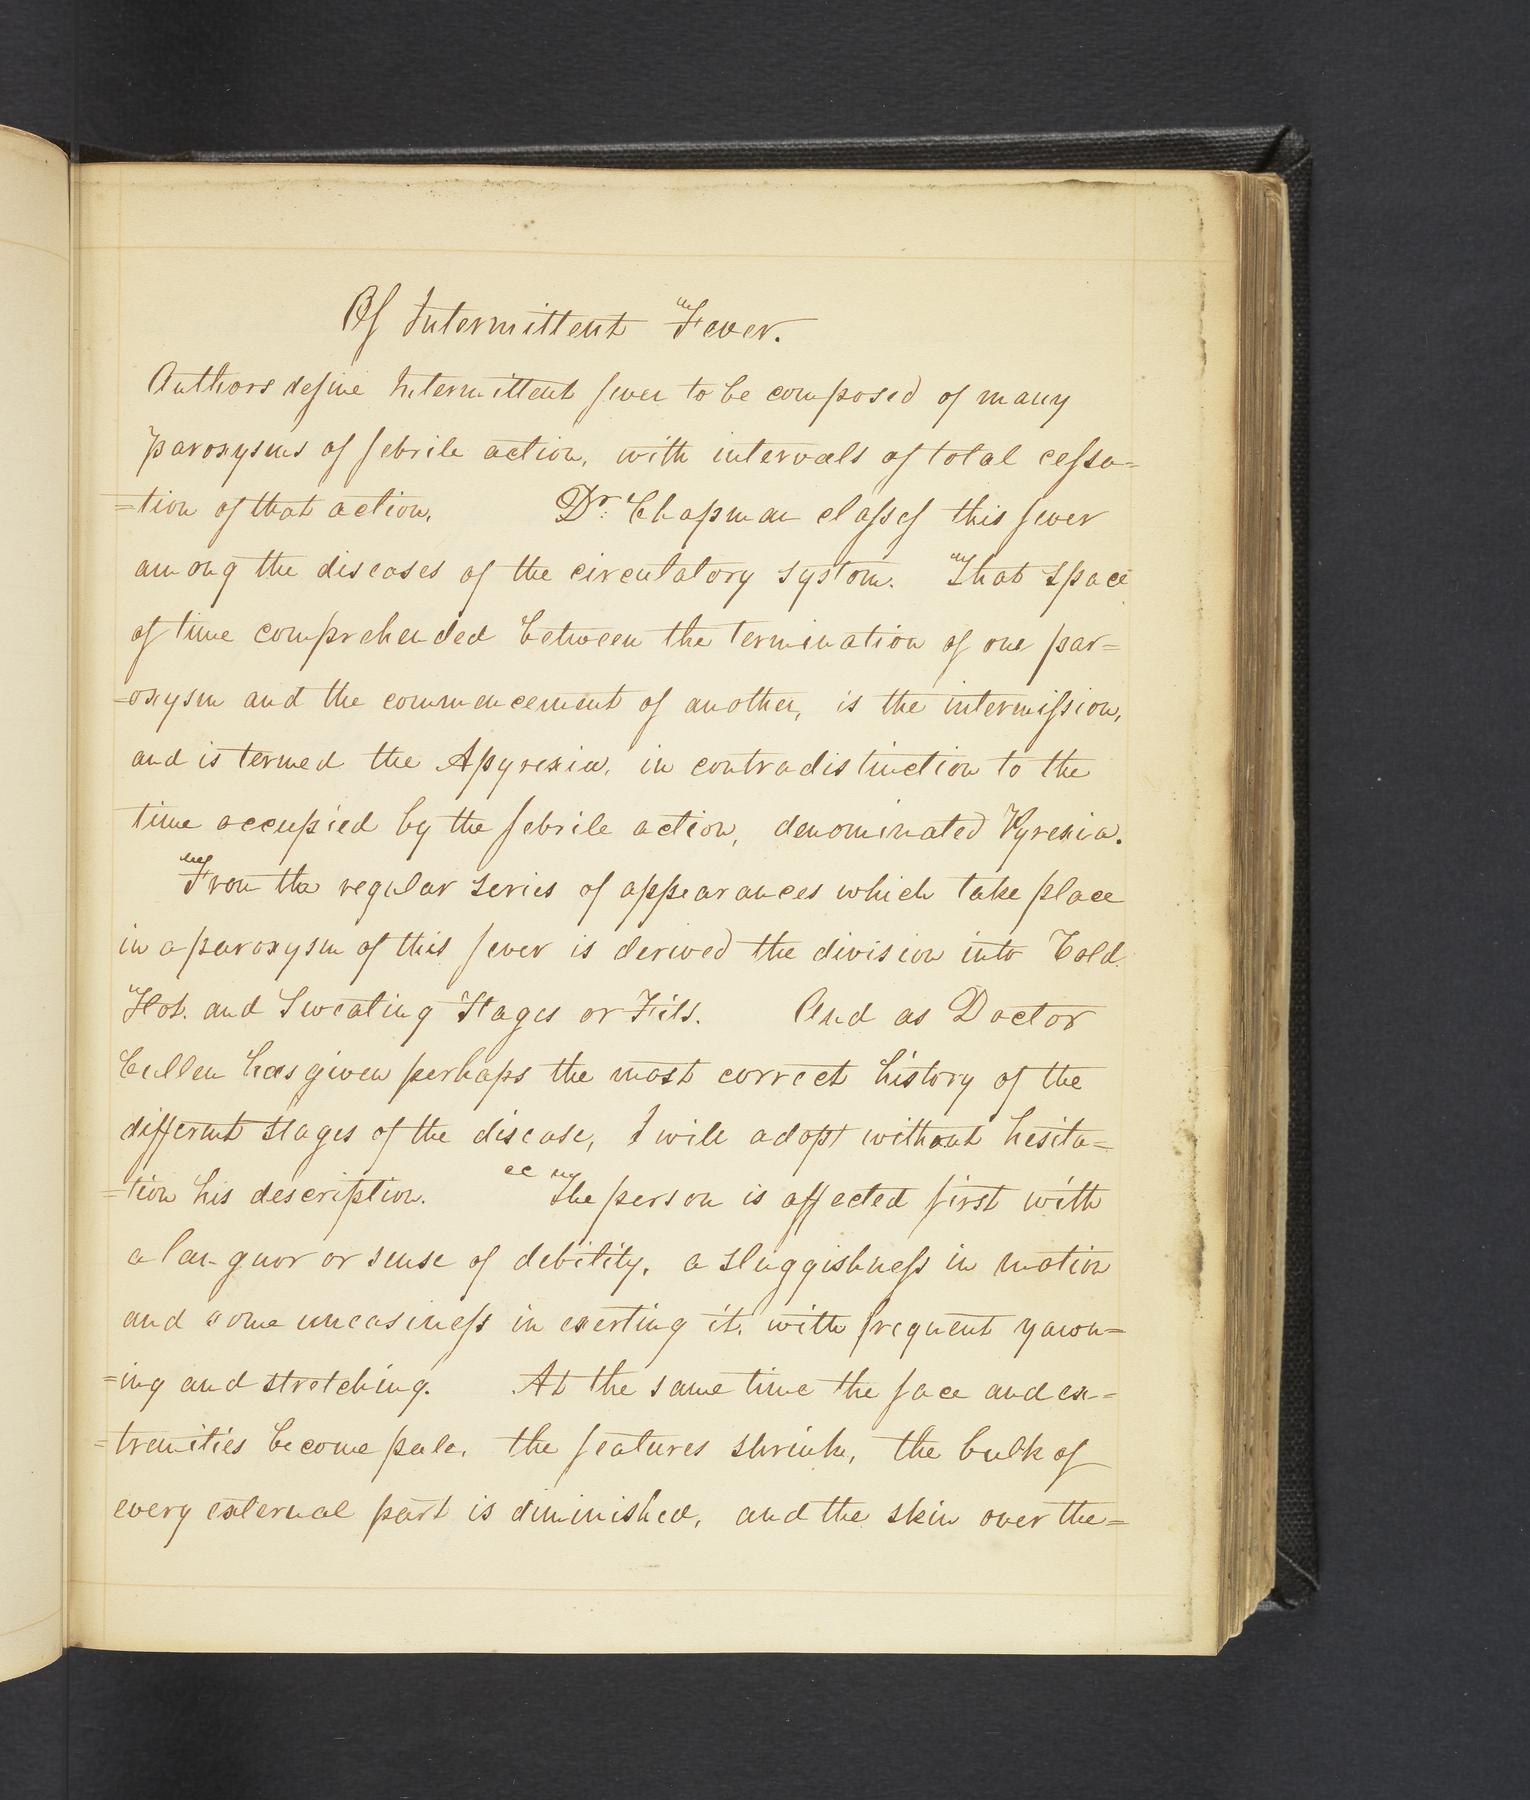 Of Intermittent Fever.
Authors define Intermittent fever to be composed of many
paroxysms of febrile action, with intervals of total cessa=
=tion of that action. Dr. Chapman classes this fever
among the diseases of the circulatory system. That space
of time comprehended between the termination of one par=
=oxysm and the commencement of another, is the intermission,
and is termed the Apyrexia, in contradistinction to the
time occupied by the febrile action, denominated Pyrexia.
From the regular series of appearances which take place
in a paroxysm of this fever is derived the division into Cold.
Hot. and Sweating Stages or Fits. And as Doctor
Cullen has given perhaps the most correct history of the
different stages of the disease, I will adopt without hesita=
=tion his description. "The person is affected first with
a languor or sense of debility, a sluggishness in motion
and some uneasiness in exerting it, with frequent yawn=
=ing and stretching. At the same time the face and ex=
=tremities become pale, the features shrink, the bulk of
every external part is diminished, and the skin over the=